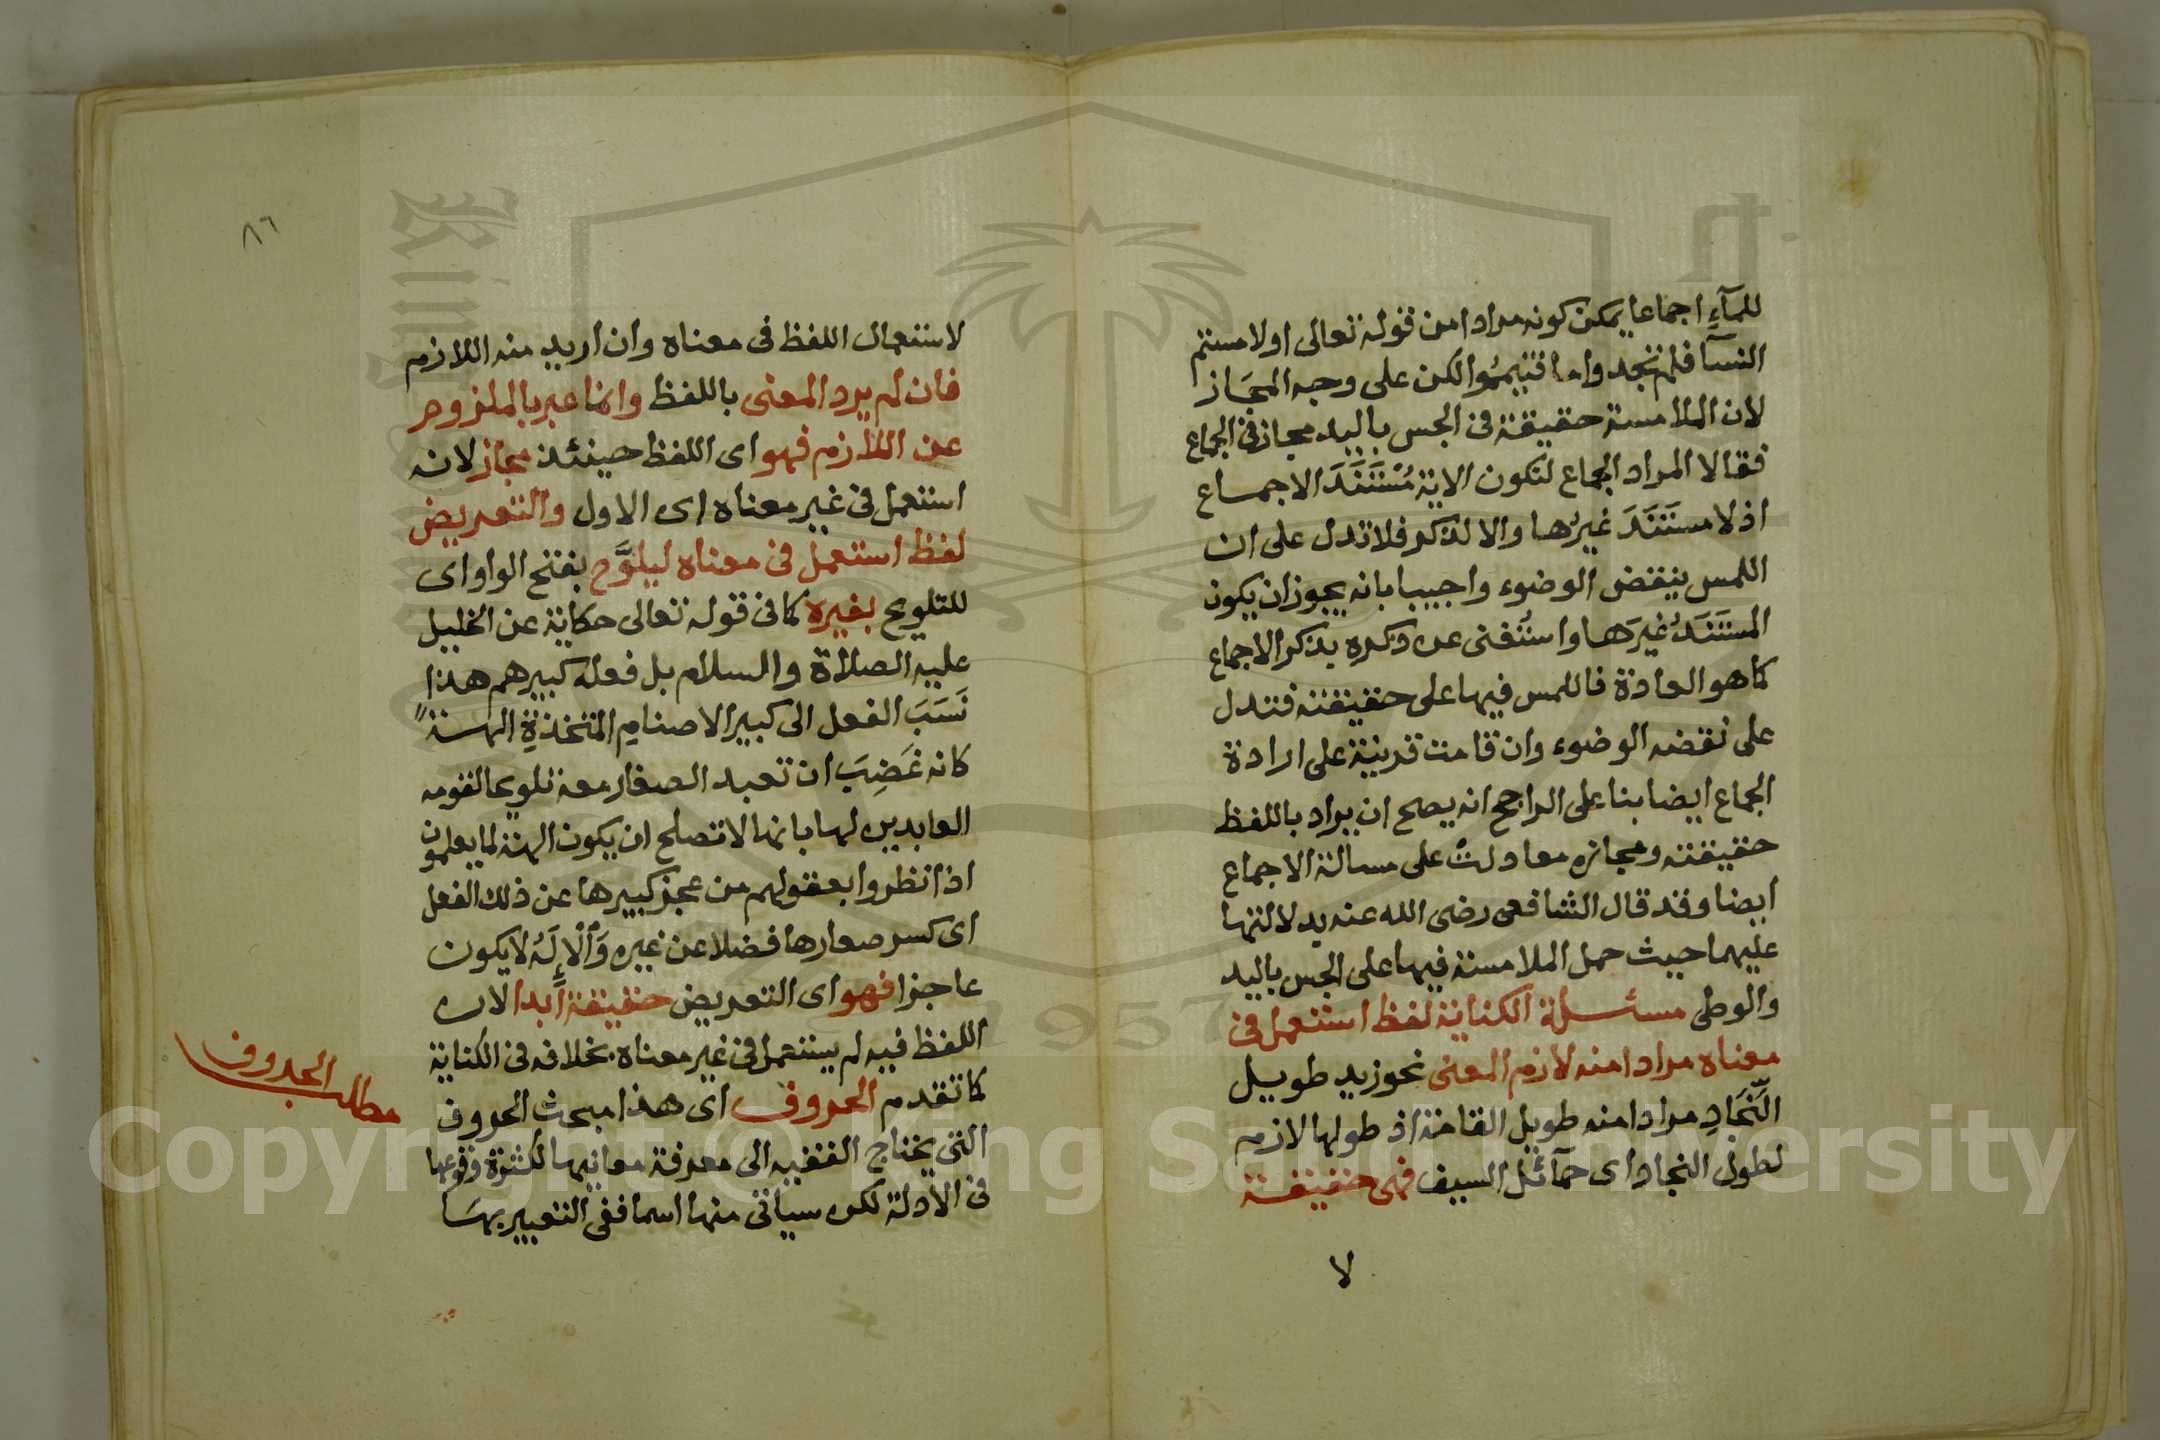 للمآءِ اجماعا يمكن كونه مرادا من قوله تعالى او لا مستم
النسآ فلم تجدوا ما فتيمموا لكن على وجه المجاز
لان الملامسة حقيقة فى الجس باليد مجاز فى الجماع
فقالا المراد الجماع لتكون الاية مُسْتَنَدَ الاجماع
اذ لا مستَنَدَ غيرُها والا لذكر فلا تدل على ان
اللمس ينقض الوضوء واجيب بانه يجوز ان يكون
المستَنَدُ غيرَها واستُغنى عن ذكره بذكر الاجماع
كما هو العادة فاللمس فيها على حقيقته فتدل
على نقضه الوضوء وان قامت قرينة على ارادة
الجماع ايضا بنا على الراجح انه يصح ان يراد باللفظ
حقيقته ومجازه معا دلتْ على مسالة الاجماع
ايضا وقد قال الشافعى رضى الله عنه بدلالتها
عليهما حيث حمل الملامسة فيها على الجس باليد
والوطى مسئلة الكناية لفظ استعمل فى
معناه مرادا منه لازم المعنى نحو زيد طويل
النَّجَادِ مرادا منه طويل القامة اذ طولها لازم
لطول النجاد اى حمآئل السيف فهى حقيقة
لا
٨٦
لاستعمال اللفظ فى معناه وان اريد منه اللازم
فان لم يرد المعنى باللفظ وانما عبر بالملزوم
عن اللازم فهو اى اللفظ حينئذ مجاز لانه
استعمل فى غير معناه اى الاول والتعريض
لفظ استعمل فى معناه ليلوَّح بفتح الواو اى
للتلويح بغيره كما فى قوله تعالى حكاية عن الخليل
عليه الصلاة والسلام بل فعله كبيرهم هذا
نَسَبَ الفعل الى كبير الاصنامِ المتخذةِ الهةً
كانه غَضِبَ ان تعبد الصغار معه تلويحا لقومه
العابدين لها بانها لا تصلح ان يكون الهة لما يعلمون
اذا نظروا بعقولهم من عجز كبيرها عن ذلك الفعل
اى كسر صغارها فضلا عن غيره وَالْاِلَهُ لا يكون
عاجزا فهو اى التعريض حقيقة ابدا لان
اللفظ فيه لم يستعمل فى غير معناه بخلافه فى الكناية
كما تقدم الحروف اى هذا مبحث الحروف
التى يحتاج الفقيه الى معرفة معانيها لكثرة وقوعها
فى الادلة لكن سياتى منها اسما ففى التعبير بها
مطالب الحروف
Copyright © King Saud University
1957